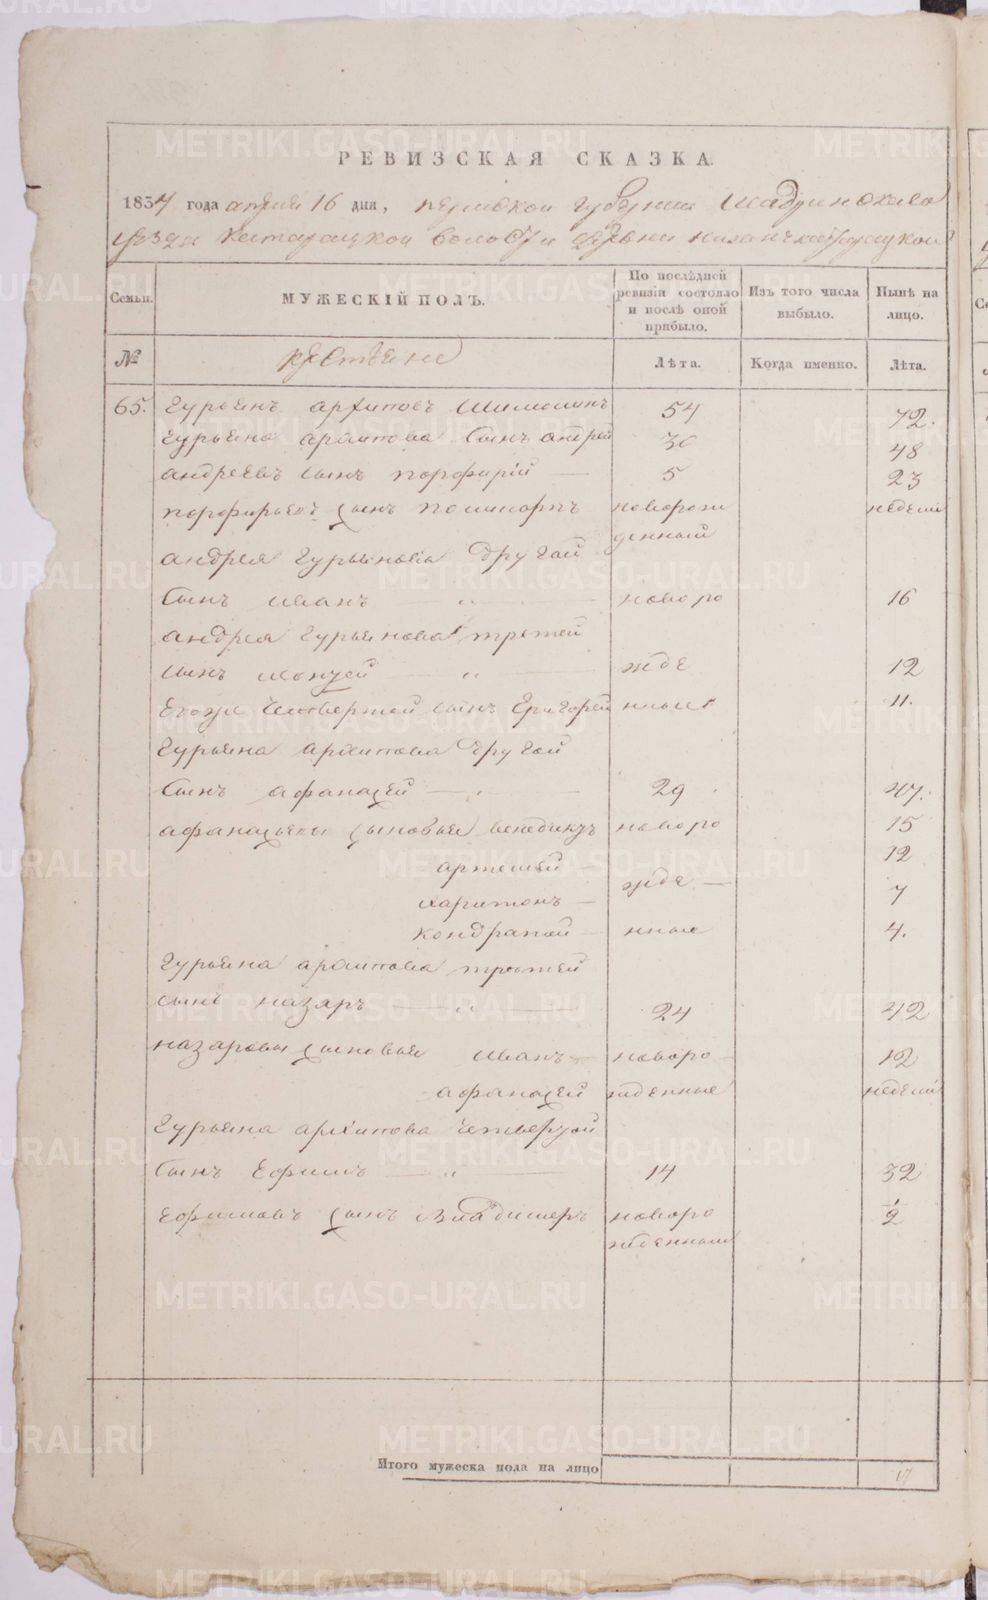 РЕВИЗСКАЯ СКАЗКА.
1834 года апреля 16 дня, пермской губернии Шадринскаго
уезда волости деревни
Семьи.
МУЖЕСКІЙ ПОЛЪ.
По послѣдней ревизіи состояло и послѣ оной прибыло.
Изъ того числа выбыло.
Нынѣ на лицо.
№
крестьяне
Лѣта.
Когда именно.
Лѣта.
65. гурьянъ архиповъ 54 72.
гурьяна архипова сынъ андрей 30 48
андреевъ сынъ порфирій — 5 23
порфирьевъ сынъ новорож недели
денный
андрея гурьянова другой
сынъ иванъ — „ — новоро 16
андрея гурьянова третей
сынъ — „ — жде 12
Егоже четвертой сынъ Григорей нные 11.
гурьяна архипова другой
сынъ афанасей — „ — 29 47.
афанасьевы сыновья венедиктъ новоро 15
артемей 12
харитонъ — жде — 7
кондратей — нные 4.
гурьяна архипова третей
сынъ назаръ — „ — 24 42
назаровы сыновья иванъ — новоро — 12
афанасей жденные недели
гурьяна архипова четвертой
сынъ Ефимъ — „ — 14 32
Ефимовъ сынъ владимеръ новоро 1/2
жденный
Итого мужеска пола на лицо 17
METRIKI.GASO-URAL.RU